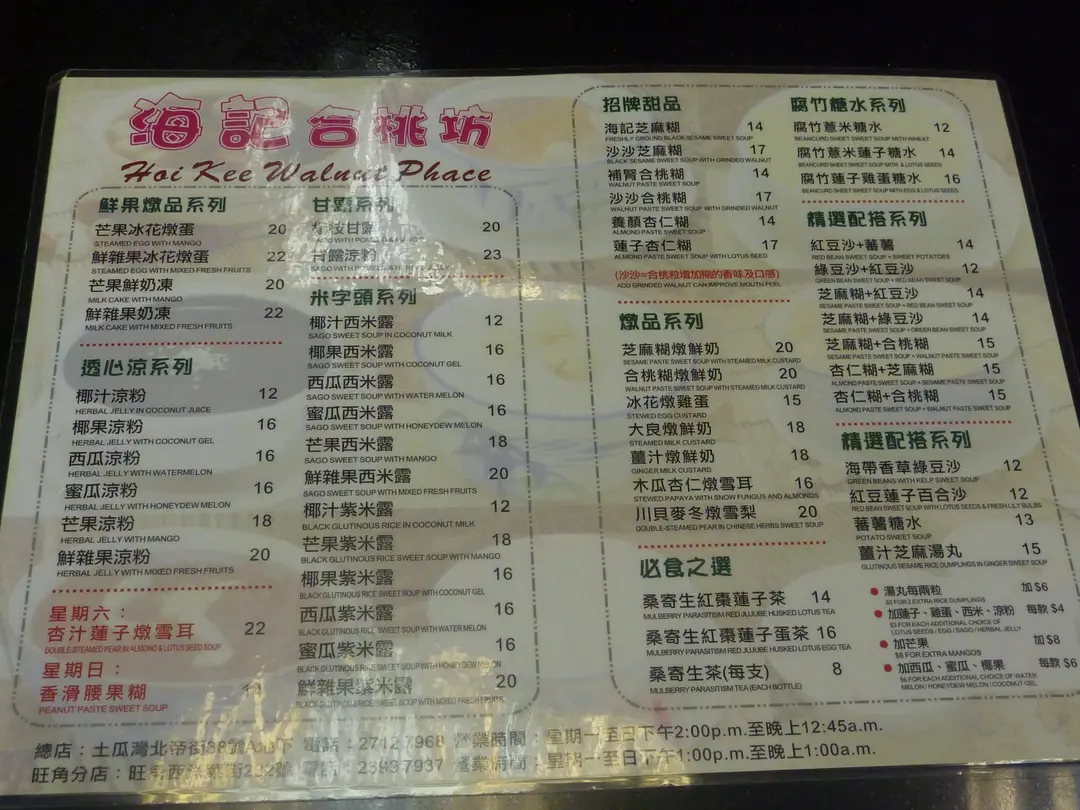 海記合桃坊
Hoi Kee Walnut Phace
鮮果燉品系列
芒果冰花燉蛋 20
STEAMED EGG WITH MANGO
鮮雜果冰花燉蛋 22
STEAMED EGG WITH MIXED FRESH FRUITS
芒果鮮奶凍 20
MILK CAKE WITH MANGO
鮮雜果奶凍 22
MILK CAKE WITH MIXED FRESH FRUITS
透心涼系列
椰汁涼粉 12
HERBAL JELLY IN COCONUT JUICE
椰果涼粉 16
HERBAL JELLY WITH COCONUT GEL
西瓜涼粉 16
HERBAL JELLY WITH WATERMELON
蜜瓜涼粉 16
HERBAL JELLY WITH HONEYDEW MELON
芒果涼粉 18
HERBAL JELLY WITH MANGO
鮮雜果涼粉 20
HERBAL JELLY WITH MIXED FRESH FRUITS
星期六：
杏汁蓮子燉雪耳 22
DOUBLE-STEAMED PEAR IN ALMOND & LOTUS SEED SOUP
星期日：
香滑腰果糊
PEANUT PASTE SWEET SOUP
甘露系列
枝甘露 20
SAGO WITH
甘露涼粉 23
SAGO WITH
米字頭系列
椰汁西米露 12
SAGO SWEET SOUP IN COCONUT MILK
椰果西米露 16
SAGO SWEET SOUP WITH COCONUT GEL
西瓜西米露 16
SAGO SWEET SOUP WITH WATER MELON
蜜瓜西米露 16
SAGO SWEET SOUP WITH HONEYDEW MELON
芒果西米露 18
SAGO SWEET SOUP WITH MANGO
鮮雜果西米露 20
SAGO SWEET SOUP WITH MIXED FRESH FRUITS
椰汁紫米露 12
BLACK GLUTINOUS RICE IN COCONUT MILK
芒果紫米露 18
BLACK GLUTINOUS RICE SWEET SOUP WITH MANGO
椰果紫米露 16
BLACK GLUTINOUS RICE SWEET SOUP WITH COCONUT GEL
西瓜紫米露 16
BLACK GLUTINOUS RICE SWEET SOUP WITH WATER MELON
蜜瓜紫米露 16
BLACK GLUTINOUS RICE SWEET SOUP WITH HONEYDEW MELON
鮮雜果紫米露 20
BLACK GLUTINOUS RICE SWEET SOUP WITH MIXED FRESH FRUITS
招牌甜品
海記芝麻糊 14
FRESHLY GROUND BLACK SESAME SWEET SOUP
沙沙芝麻糊 17
BLACK SESAME SWEET SOUP WITH GRINDED WALNUT
補腎合桃糊 14
WALNUT PASTE SWEET SOUP
沙沙合桃糊 17
WALNUT PASTE SWEET SOUP WITH GRINDED WALNUT
養顏杏仁糊 14
ALMOND PASTE SWEET SOUP
蓮子杏仁糊 17
ALMOND PASTE SWEET SOUP WITH LOTUS SEED
(沙沙=合桃增加糊的香味及口感)
ADD GRINDED WALNUT CAN IMPROVE MOUTH FEEL
燉品系列
芝麻糊燉鮮奶 20
SESAME PASTE SWEET SOUP WITH STEAMED MILK CUSTARD
合桃糊燉鮮奶 20
WALNUT PASTE SWEET SOUP WITH STEAMED MILK CUSTARD
冰花燉雞蛋 15
STEWED EGG CUSTARD
大良燉鮮奶 18
STEAMED MILK CUSTARD
薑汁燉鮮奶 18
GINGER MILK CUSTARD
木瓜杏仁燉雪耳 16
STEWED PAPAYA WITH SNOW FUNGUS AND ALMONDS
川貝麥冬燉雪梨 20
DOUBLE-STEAMED PEAR IN CHINESE HERBS SWEET SOUP
必食之選
桑寄生紅棗蓮子茶 14
MULBERRY PARASITISM RED JUJUBE HUSKED LOTUS TEA
桑寄生紅棗蓮子蛋茶 16
MULBERRY PARASITISM RED JUJUBE HUSKED LOTUS EGG TEA
桑寄生茶(每支) 8
MULBERRY PARASITISM TEA (EACH BOTTLE)
腐竹糖水系列
腐竹薏米糖水 12
BEANCURD SHEET SWEET SOUP WITH WHEAT
腐竹薏米蓮子糖水 14
BEANCURD SHEET SWEET SOUP WITH & LOTUS SEEDS
腐竹蓮子雞蛋糖水 16
BEANCURD SHEET SWEET SOUP WITH EGG & LOTUS SEEDS
精選配搭系列
紅豆沙+蕃薯 14
RED BEAN SWEET SOUP + SWEET POTATOES
綠豆沙+紅豆沙 12
GREEN BEAN SWEET SOUP + RED BEAN SWEET SOUP
芝麻糊+紅豆沙 14
SESAME PASTE SWEET SOUP + RED BEAN SWEET SOUP
芝麻糊+綠豆沙 14
SESAME PASTE SWEET SOUP + GREEN BEAN SWEET SOUP
芝麻糊+合桃糊 15
SESAME PASTE SWEET SOUP + WALNUT PASTE SWEET SOUP
杏仁糊+芝麻糊 15
ALMOND PASTE SWEET SOUP + SESAME PASTE SWEET SOUP
杏仁糊+合桃糊 15
ALMOND PASTE SWEET SOUP + WALNUT PASTE SWEET SOUP
精選配搭系列
海帶香草綠豆沙 12
GREEN BEANS WITH KELP SWEET SOUP
紅豆蓮子百合沙 12
RED BEAN SWEET SOUP WITH LOTUS SEEDS & FRESH LILY BULBS
蕃薯糖水 13
POTATO SWEET SOUP
薑汁芝麻湯丸 15
GLUTINOUS SESAME RICE DUMPLINGS IN GINGER SWEET SOUP
湯丸每兩粒 加$6
FOR 2 EXTRA RICE DUMPLINGS
加蓮子、雞蛋、西米、涼粉 每款$4
FOR EACH ADDITIONAL CHOICE OF
LOTUS SEEDS / EGG / SAGO / HERBAL JELLY
加芒果 加$8
$8 FOR EXTRA MANGOS
加西瓜、蜜瓜、椰果 每款$6
$6 FOR EACH ADDITIONAL CHOICE OF WATER
MELON / HONEYDEW MELON / COCONUT GEL
總店：土瓜灣北帝街 電話：2712 7968 營業時間：星期一至日下午2:00p.m.至晚上12:45a.m.
旺角分店：旺角西洋菜街 電話： 7937 營業時間：星期一至日下午1:00p.m.至晚上1:00a.m.